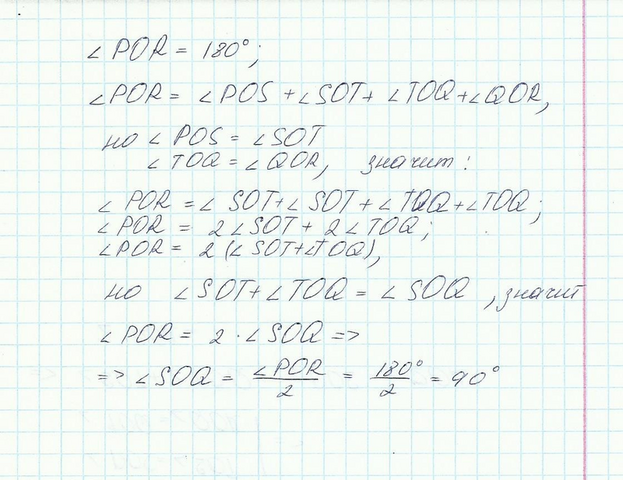 ∠POR = 180°;
∠POR = ∠POS + ∠SOT + ∠TOQ + ∠QOR,
но ∠POS = ∠SOT
∠TOQ = ∠QOR, значит:
∠POR = ∠SOT + ∠SOT + ∠TOQ + ∠TOQ;
∠POR = 2∠SOT + 2∠TOQ;
∠POR = 2(∠SOT+∠TOQ),
но ∠SOT + ∠TOQ = ∠SOQ, значит
∠POR = 2 · ∠SOQ =>
=> ∠SOQ = ∠POR/2 = 180°/2 = 90°